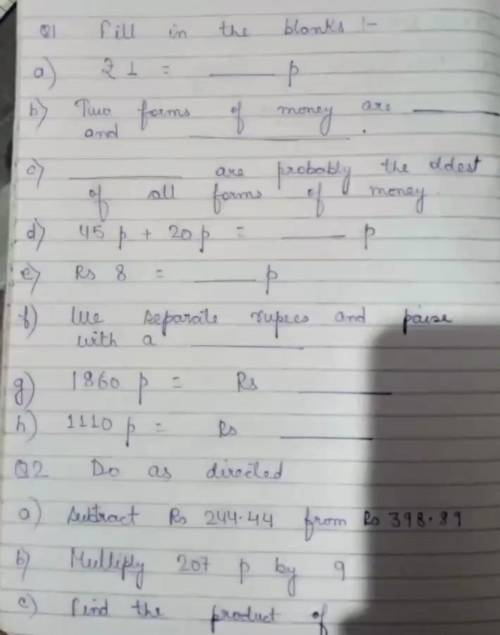 Q1 Fill in the blanks :-
a) ₹ 1 = ______ p
b) Two forms of money are ______
and ______ .
c) ______ are probably the oldest
of all forms of money.
d) 45 p + 20 p = ______ p
e) Rs 8 = ______ p
f) We separate rupees and paise
with a ______
g) 1860 p = Rs ______
h) 1110 p = Rs ______
Q2 Do as directed
a) Subtract Rs 244.44 from Rs 398.89
b) Multiply 207 p by 9
c) Find the product of